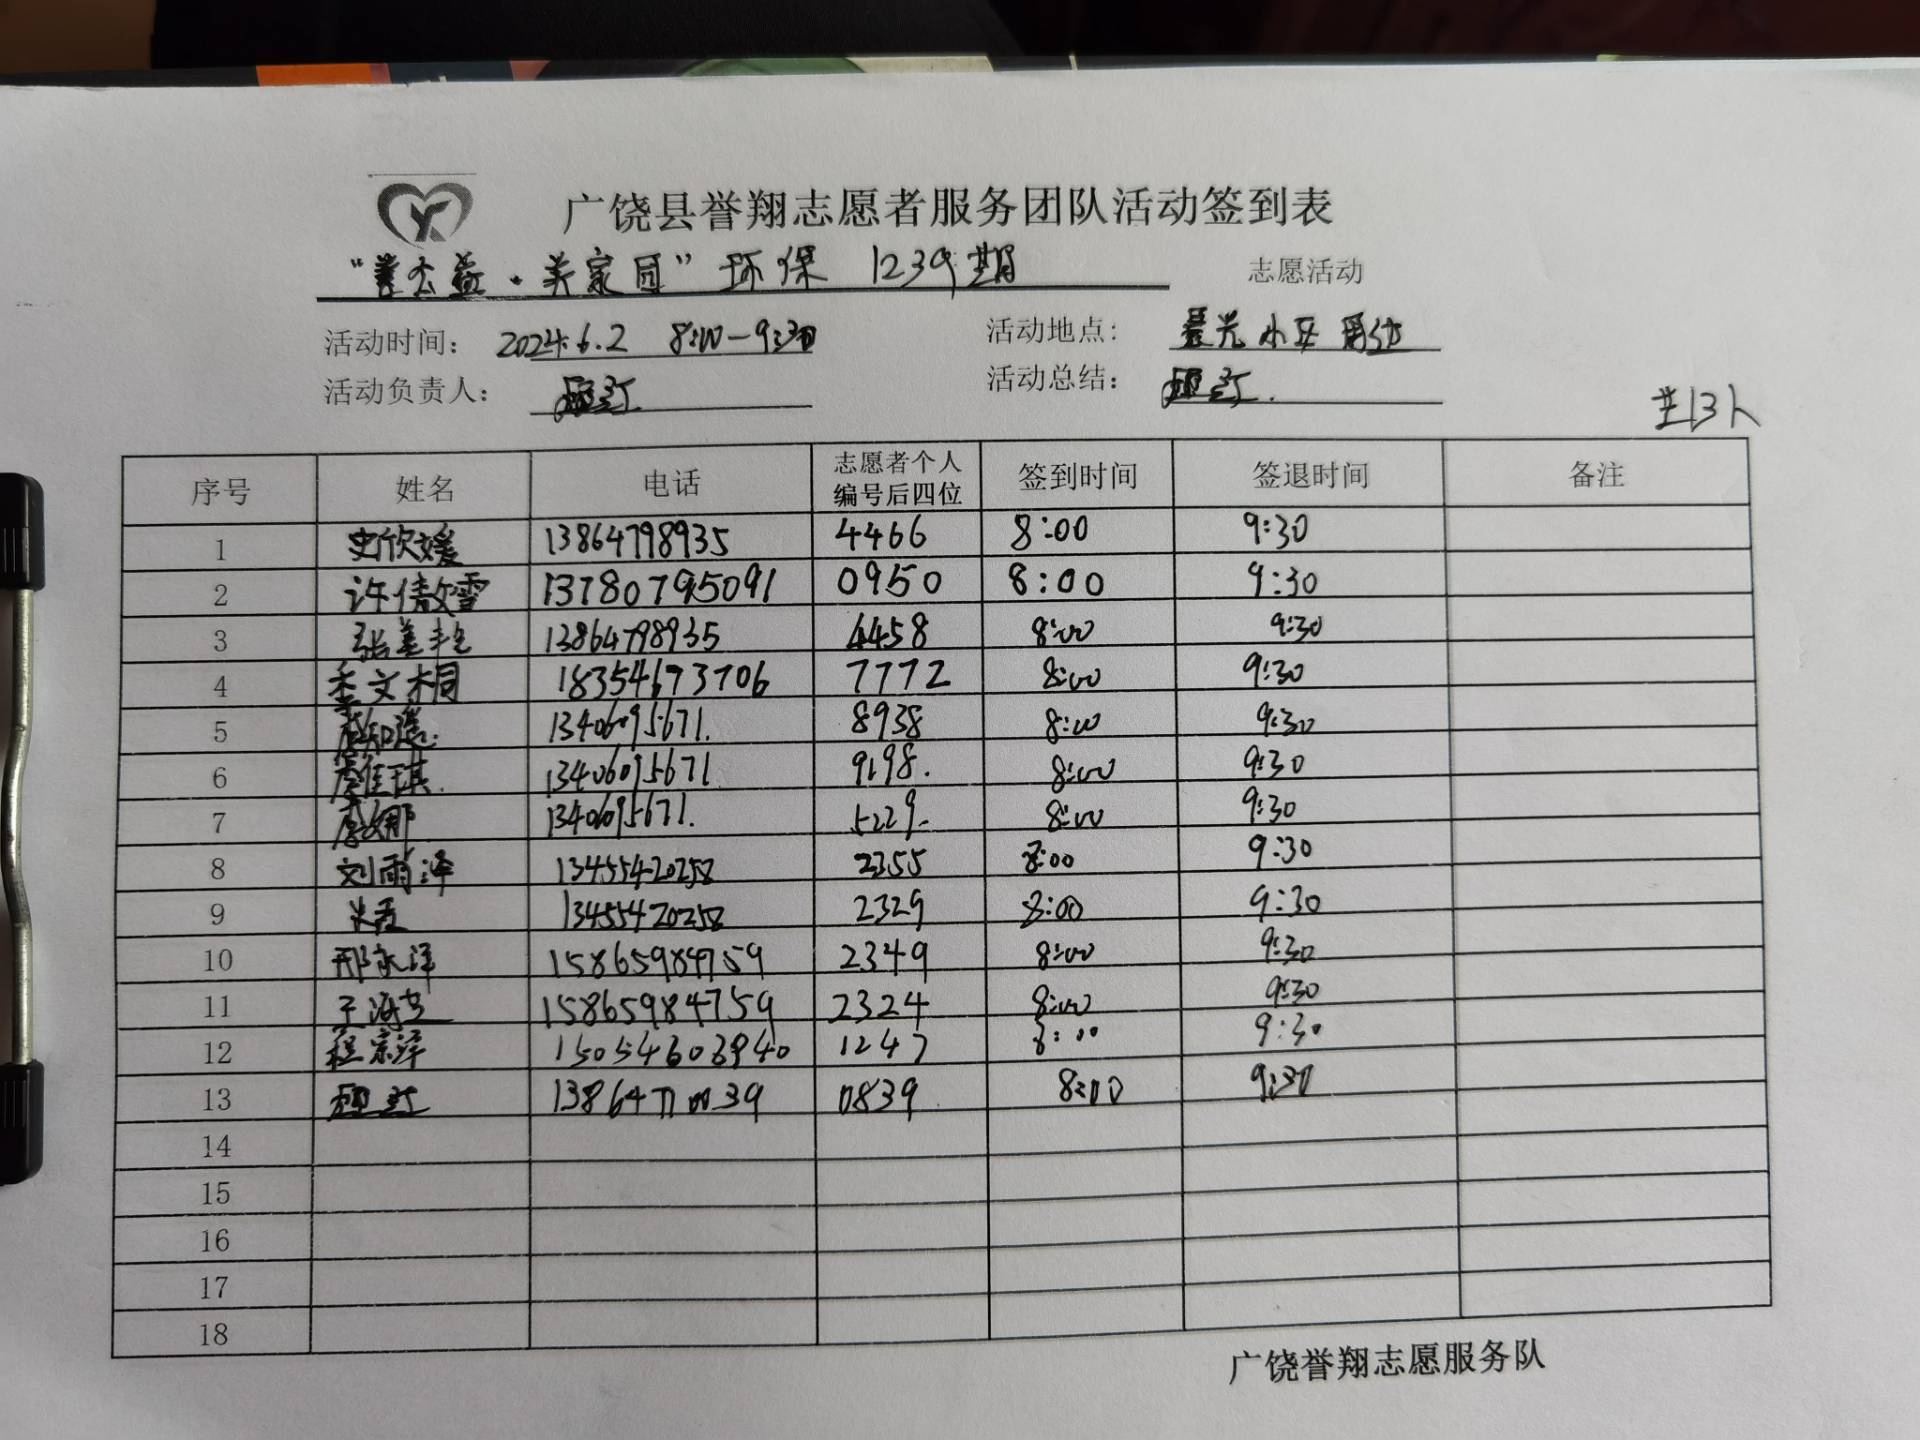 广饶县誉翔志愿者服务团队活动签到表
“善公益·美家园”环保 1239期 志愿活动
活动时间： 2024.6.2 8:00-9:30 活动地点： 晨光小区周边
活动负责人： 活动总结：
共13人
序号 姓名 电话 志愿者个人编号后四位 签到时间 签退时间 备注
1 史欣媛 13864798935 4466 8:00 9:30
2 许倩雪 13780795091 0950 8:00 9:30
3 张美艳 13864798935 4458 8:00 9:30
4 李文桐 18354673706 7772 8:00 9:30
5 13406095671. 8938 8:00 9:30
6 13406095671 9198. 8:00 9:30
7 13406095671. 5229. 8:00 9:30
8 刘雨泽 13455420258 2355 8:00 9:30
9 13455420258 2329 8:00 9:30
10 邢家洋 15865984759 2349 8:00 9:30
11 15865984759 2324 8:00 9:30
12 程宗泽 15054603940 1247 8:00 9:30
13 13864770039 0839 8:00 9:30
14
15
16
17
18
广饶誉翔志愿服务队